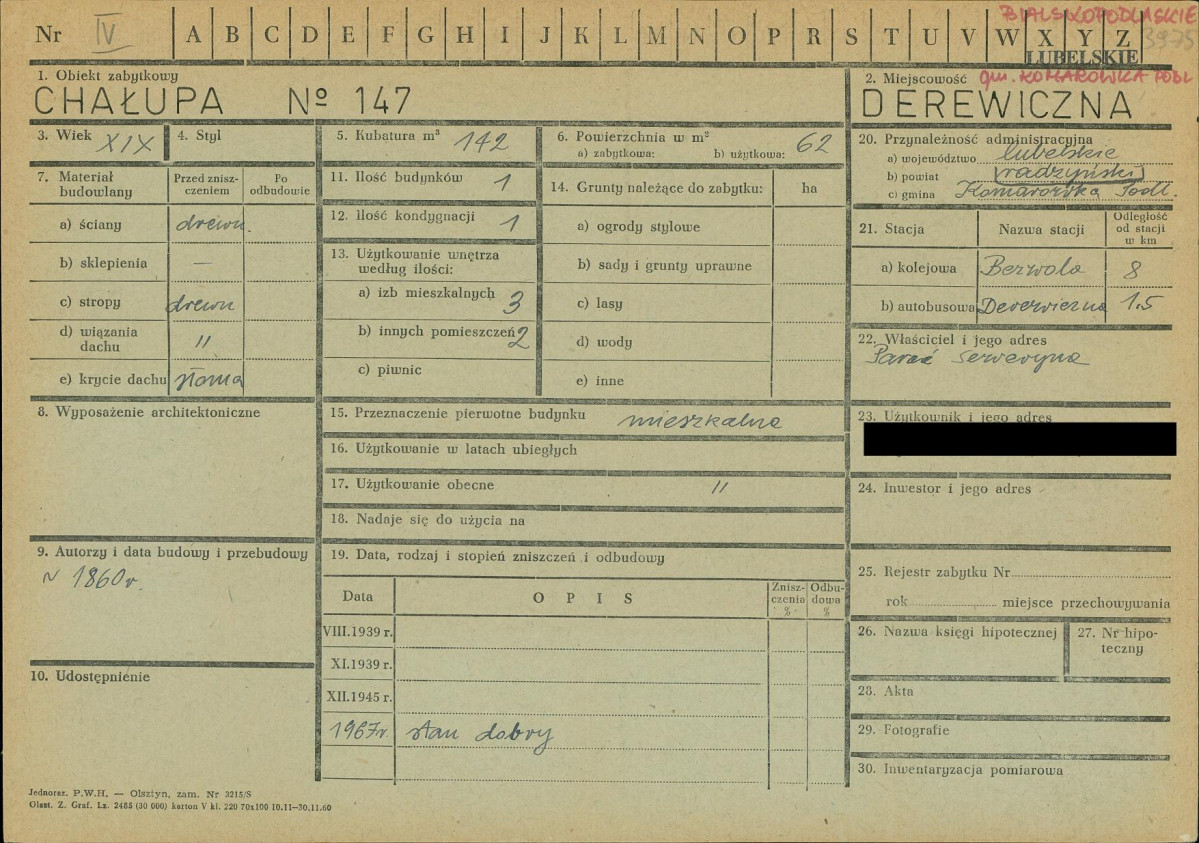 BIALSKOPODLASKIE
Nr IV A B C D E F G H I J K L M N O P R S T U V W X Y Z 3975
LUBELSKIE
gm. KOMARÓWKA PODL
1. Obiekt zabytkowy
CHAŁUPA Nº 147
2. Miejscowość
DEREWICZNA
3. Wiek XIX
4. Styl
5. Kubatura m³ 142
6. Powierzchnia w m²
a) zabytkowa: b) użytkowa: 62
7. Materiał budowlany
Przed zniszczeniem
Po odbudowie
a) ściany drewn.
b) sklepienia —
c) stropy drewn
d) wiązania dachu "
e) krycie dachu słoma
8. Wyposażenie architektoniczne
9. Autorzy i data budowy i przebudowy
~ 1860r.
10. Udostępnienie
11. Ilość budynków 1
12. Ilość kondygnacji 1
13. Użytkowanie wnętrza
według ilości:
a) izb mieszkalnych 3
b) innych pomieszczeń 2
c) piwnic
14. Grunty należące do zabytku: ha
a) ogrody stylowe
b) sady i grunty uprawne
c) lasy
d) wody
e) inne
15. Przeznaczenie pierwotne budynku mieszkalne
16. Użytkowanie w latach ubiegłych
17. Użytkowanie obecne "
18. Nadaje się do użycia na
19. Data, rodzaj i stopień zniszczeń i odbudowy
Data OPIS Zniszczenia % Odbudowa %
VIII.1939 r.
XI.1939 r.
XII.1945 r.
1967r. stan dobry
20. Przynależność administracyjna
a) województwo lubelskie
b) powiat radzyński
c) gmina Komarówka Podl.
21. Stacja Nazwa stacji Odległość od stacji w km
a) kolejowa Bezwola 8
b) autobusowa Derewiczna 1.5
22. Właściciel i jego adres
Seweryna
23. Użytkownik i jego adres
24. Inwestor i jego adres
25. Rejestr zabytku Nr
rok miejsce przechowywania
26. Nazwa księgi hipotecznej
27. Nr hipoteczny
28. Akta
29. Fotografie
30. Inwentaryzacja pomiarowa
Jednoraz. P.W.H. — Olsztyn, zam. Nr 3215/S
Olszt. Z. Graf. Lz. 2485 (30 000) karton V kl. 220 70x100 10.11—30.11.60